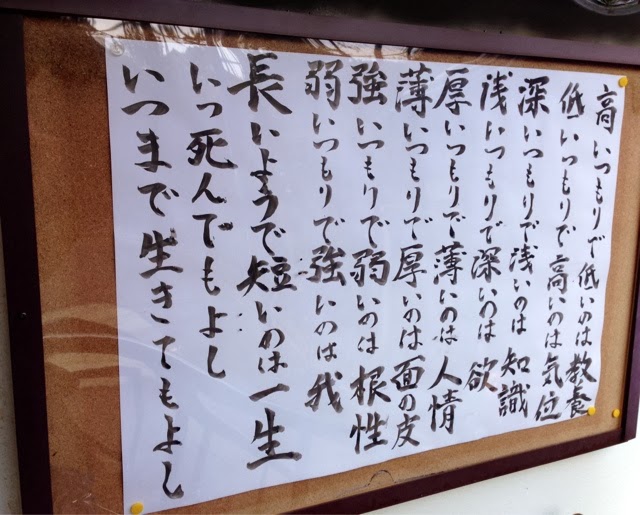 高いつもりで低いのは教養
低いつもりで高いのは気位
深いつもりで浅いのは知識
浅いつもりで深いのは欲
厚いつもりで薄いのは人情
薄いつもりで厚いのは面の皮
強いつもりで弱いのは根性
弱いつもりで強いのは我
長いようで短いのは一生
いつ死んでもよし
いつまで生きてもよし